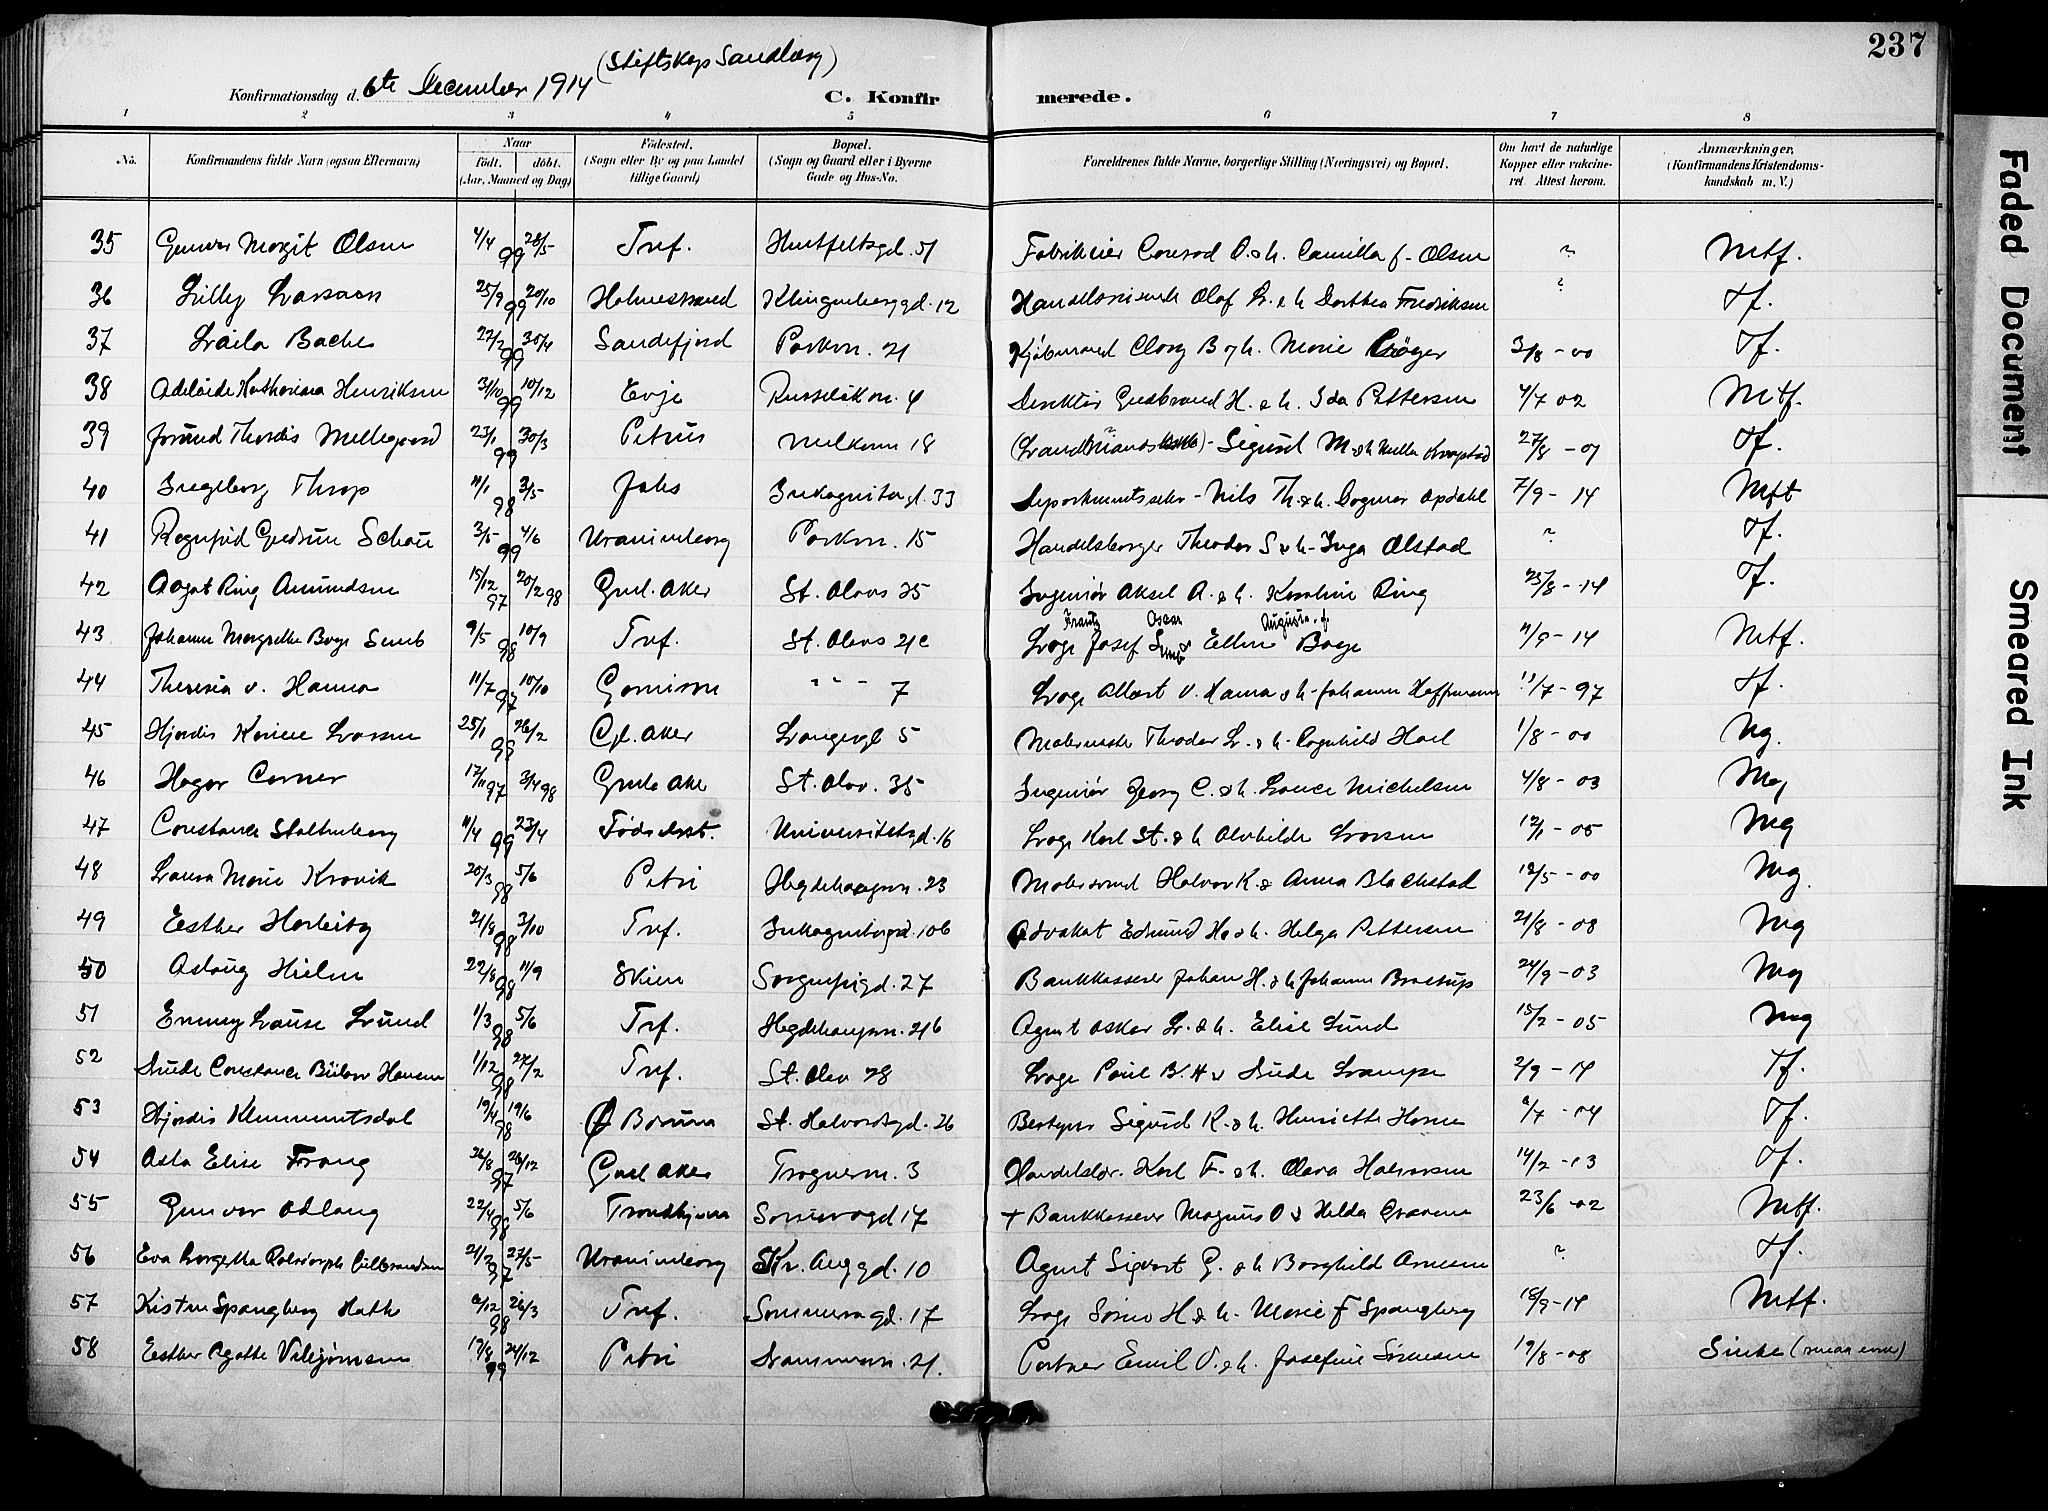 237
(Stiftskap Sandberg)
Konfirmationsdag d. 6te December 1914
C. Konfirmerede.
1 2 3 4 5 6 7 8
No.
Konfirmandens fulde Navn (ogsaa Efternavn)
Naar født. døbt. (Aar, Maaned og Dag)
Fødested. (Sogn eller By og paa Landet tillige Gaard)
Bopæl. (Sogn og Gaard eller i Byerne Gade og Hus-No.
Forældrenes fulde Navne, borgerlige Stilling (Næringsvei) og Bopæl.
Om havt de naturlige Kopper eller vakcineret. Attest herom.
Anmærkninger, (Konfirmandens Kristendomskundskab m. V.)
35 Gunvor Margit Olsen 4/4 99 28/5 Tref. Huitfeltsgd. 51 Fabrikeier Conrad O. & h. Camilla f. Olsen ? Mtf.
36 Lilly Larsen 25/9 99 20/10 Holmestrand Klingenberggd. 12 Olaf L. & h. Dorthea Fredriksen ? Tf.
37 Laila Bache 22/2 99 30/4 Sandefjord Parkvn. 21 Kjøbmand B & h. Marie 3/8 - 00 Tf.
38 Adelaide Katharina Henriksen 31/10 99 10/12 Evje 4 Direktør Gudbrand H. & h. Ida Pettersen 4/7 02 Mtf.
39 Jorund Thordis Mellegaard 23/1 99 30/3 Petrus 18 Sigurd M & h 27/8 - 01 Tf.
40 Ingeborg Throp 11/1 98 3/5 Jahs Inkognitogt. 33 Nils Th. & h. Dagmar Opdahl 7/9 - 14 Mft
41 Ragnfrid Gudrun Schou 3/5 99 4/6 Uranienborg Parkvn. 15 Handelsborger Theodor S & h. Inga Olstad ? Tf.
42 Aagot Ring Amundsen 15/12 97 20/2 98 Gml. Aker St. Olavs 35 Ingeniør Aksel A. & h. Karoline Ring 25/8 - 14 Tf.
Frantz Oscar Augusta f.
43 Johanne Margrethe Boye Semb 9/5 98 10/9 Tref. St. Olavs 21c Læge Josef Semb & Ellen Boye 11/9 - 14 Mtf.
44 Theresia v. Hanno 11/7 97 10/10 Garnison " " " 7 Læge Albert v. Hanno & h. Johanne Hoffmann 11/7 - 97 Tf.
45 Hjørdis Karine Larsen 25/1 98 26/2 Gl. Aker Langesgt 5 Theodor L. & h. Ragnhild 1/8 - 00 Mg.
46 Hagar Corner 17/11 97 3/4 98 Gmle Aker St. Olav. 35 Ingeniør Georg C. & h. Michelsen 4/8 - 03 Mg
47 Constance Stoltenberg 11/4 99 23/4 Fødselsst. Universitetsgd. 16 Læge Karl St. & h Alvhilde Larsen 12/1 - 05 Mg
48 Laura Marie Kravik 20/3 98 5/6 Petri Hegdehaugsvn. 23 Halvor K. & Anna Blachstad 12/5 - 00 Mg.
49 Esther Harbitz 21/8 98 3/10 Tref. Inkognitogd. 10b Advokat Edmund H. & h. Helga Pettersen 21/8 - 08 Mg
50 Aslaug Hielm 22/8 98 11/9 Skien Sorgenfrigd. 27 Bankkasserer Johan H. & h Johanne 24/9 - 03 Mg
51 Emmy Louise Lund 1/3 98 5/6 Tref. Hegdehaugsvn. 21b Agent Oskar L. & h. Elise Lund 15/2 - 05 Mg
52 Constance Bülow Hansen 1/12 98 27/2 Tref. St. Olav 28 Læge Paul B. H & 2/9 - 14 Tf.
53 Hjørdis Klemmetsdal 19/4 98 19/6 Ø Borum St. Halvardsgd. 26 Bestyrer Sigurd K. & h. Henriette 4/7 - 04 Tf.
54 Asta Elise Frang 26/8 97 26/12 Gml Aker Frognervn. 3 Karl F. & h. Clara Halvorsen 14/2 - 13 Tf.
55 Gunvor Ødlaug 22/4 98 5/6 Trondhjem 17 + Bankkasserer Magnus O & Helda 23/6 - 02 Mtf.
56 Eva 21/2 97 27/5 Uranienborg Kr. Auggd. 10 Agent Sigvart G. & h Borghild Arnesen ? Tf.
57 Kirsten Spangberg Hatle 12 98 26/3 Tref. 17 Læge H & h. Marie F Spangberg 18/9 - 14 Mtf.
58 Esther Agathe Vilhjømsen 17/9 99 24/12 Petri Drammensvn. 21. Portner Emil V. & h. Josefine 19/8 - 08 Sinke
Faded Document
Smeared Ink